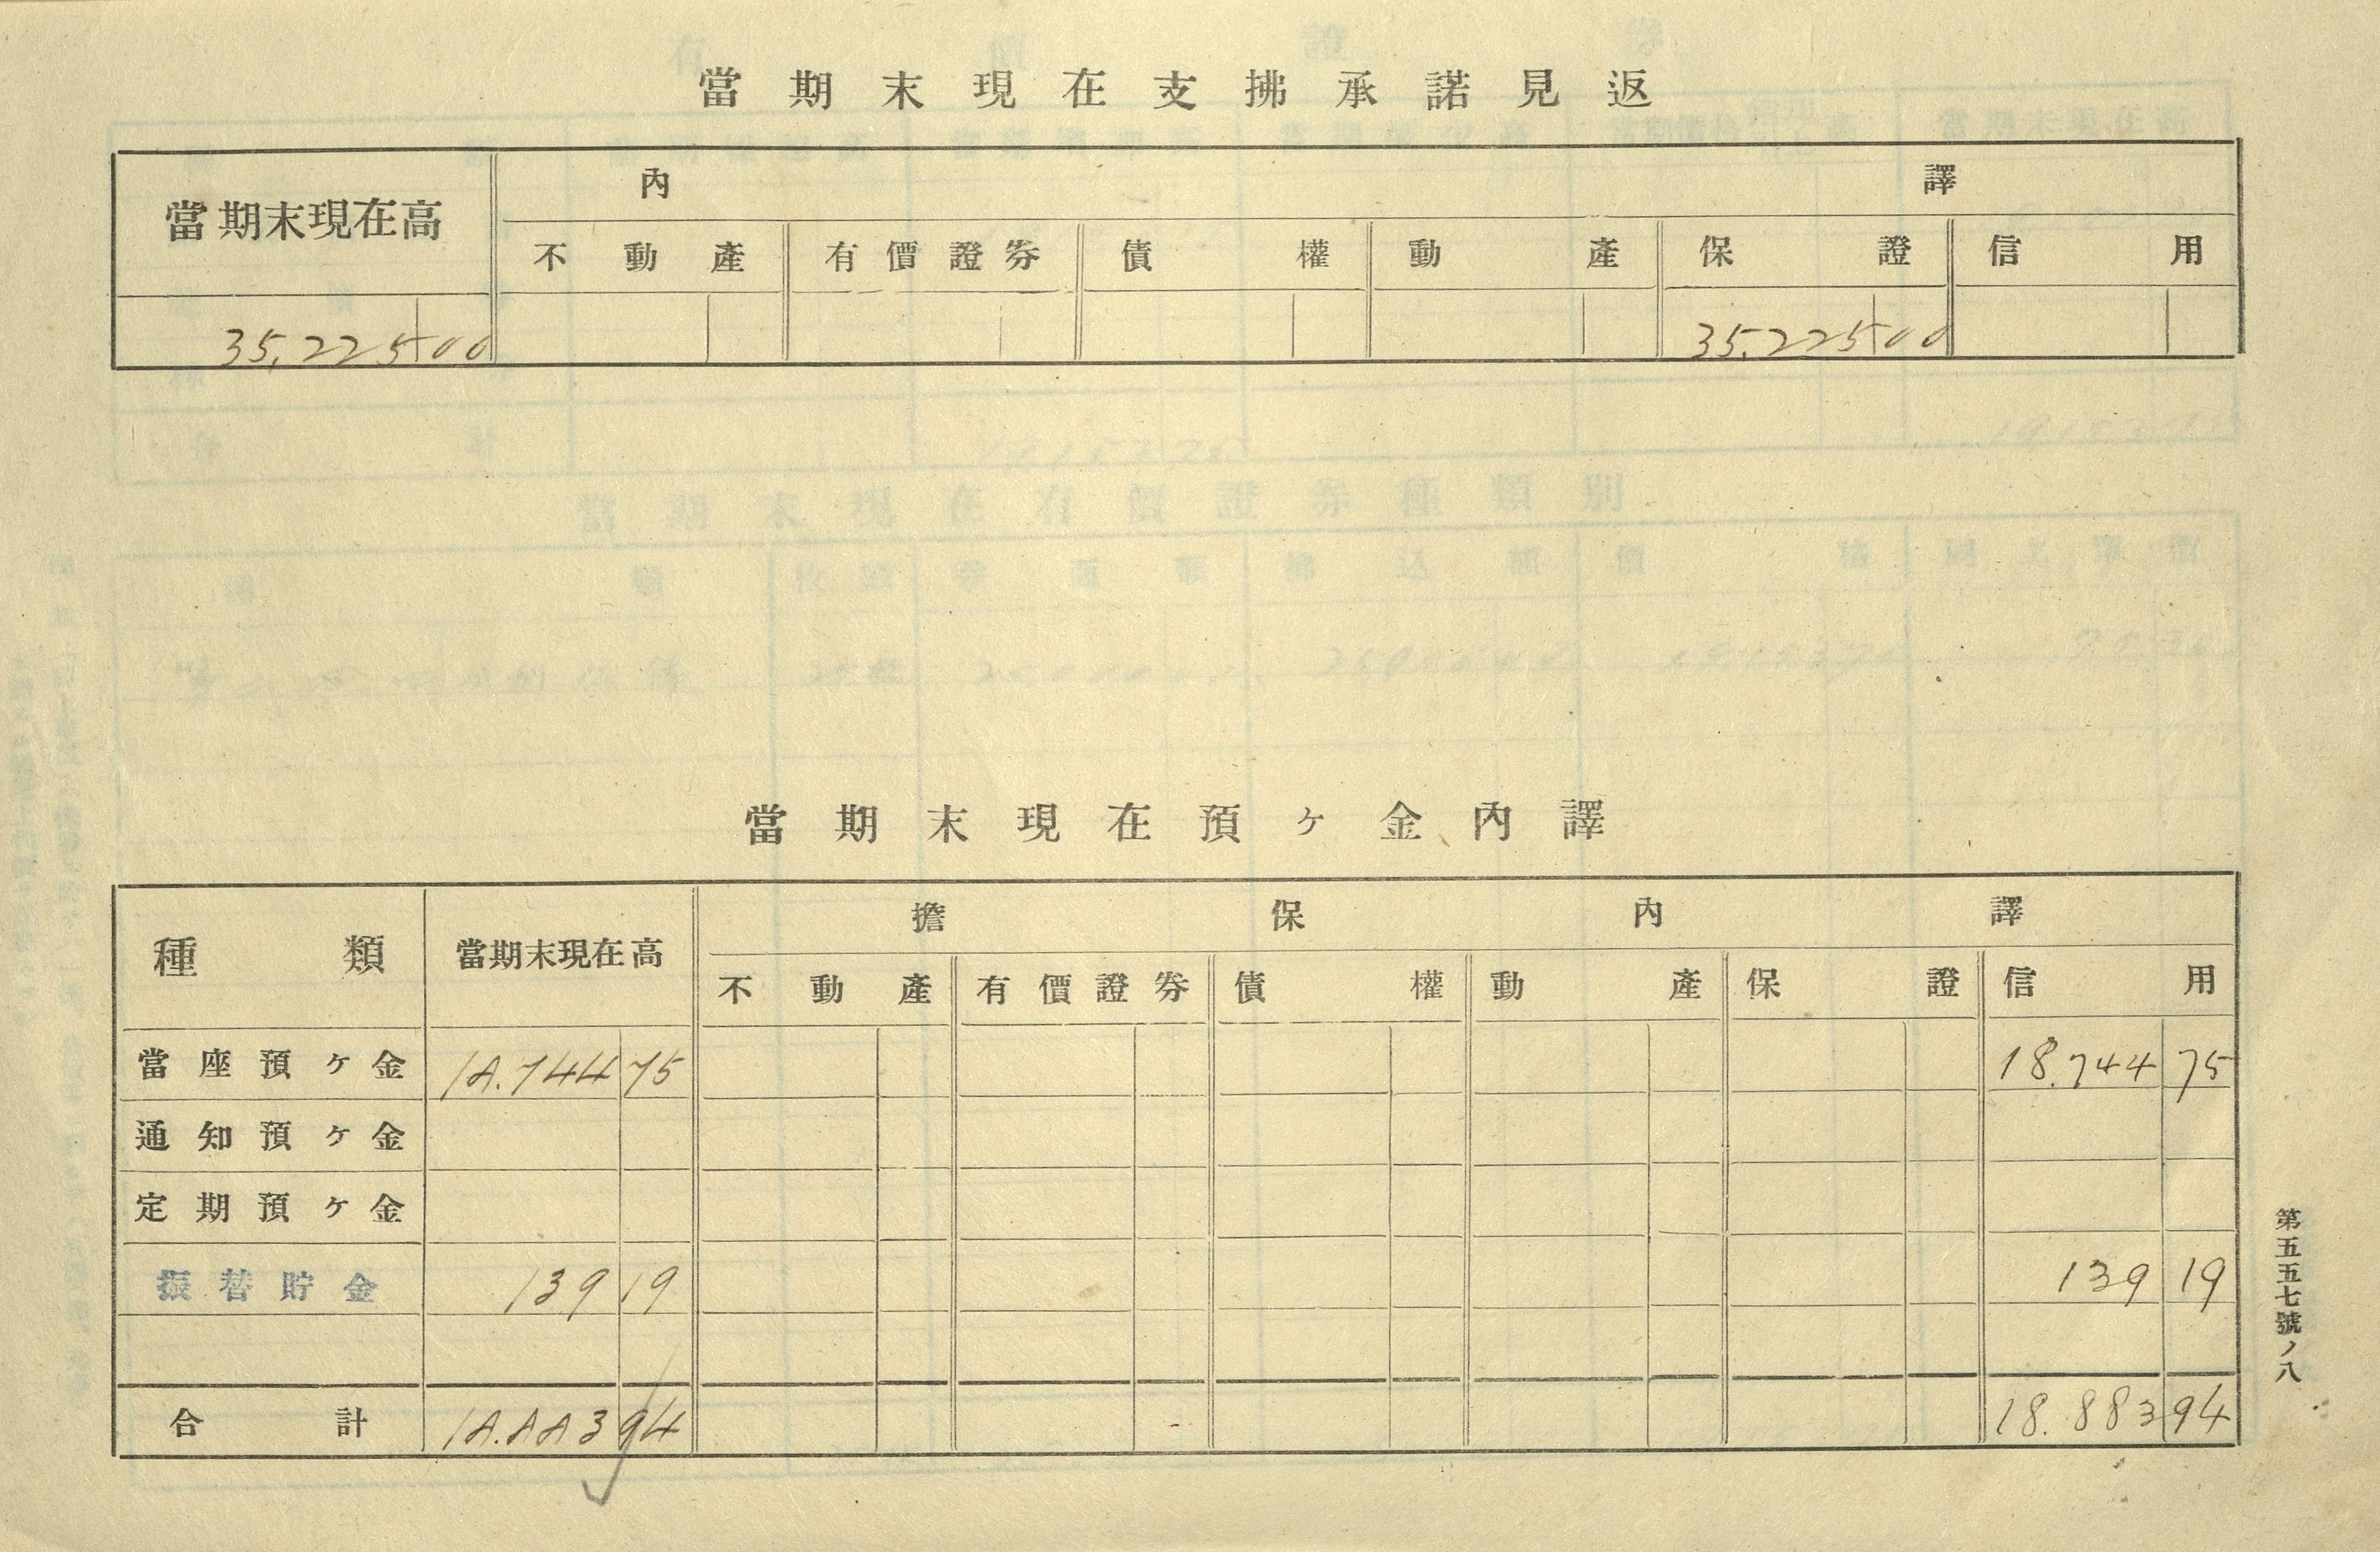 當期末現在支拂承諾見返
當期末現在高 內譯
不動產 有價證券 債權 動產 保證 信用
35,225 00 35,225 00
當期末現在預ヶ金內譯
種類 當期末現在高 擔保內譯
不動產 有價證券 債權 動產 保證 信用
當座預ヶ金 18.744 75 18.744 75
通知預ヶ金
定期預ヶ金
振替貯金 139 19 139 19
合計 18.883 94 18.883 94
第五五七號ノ八